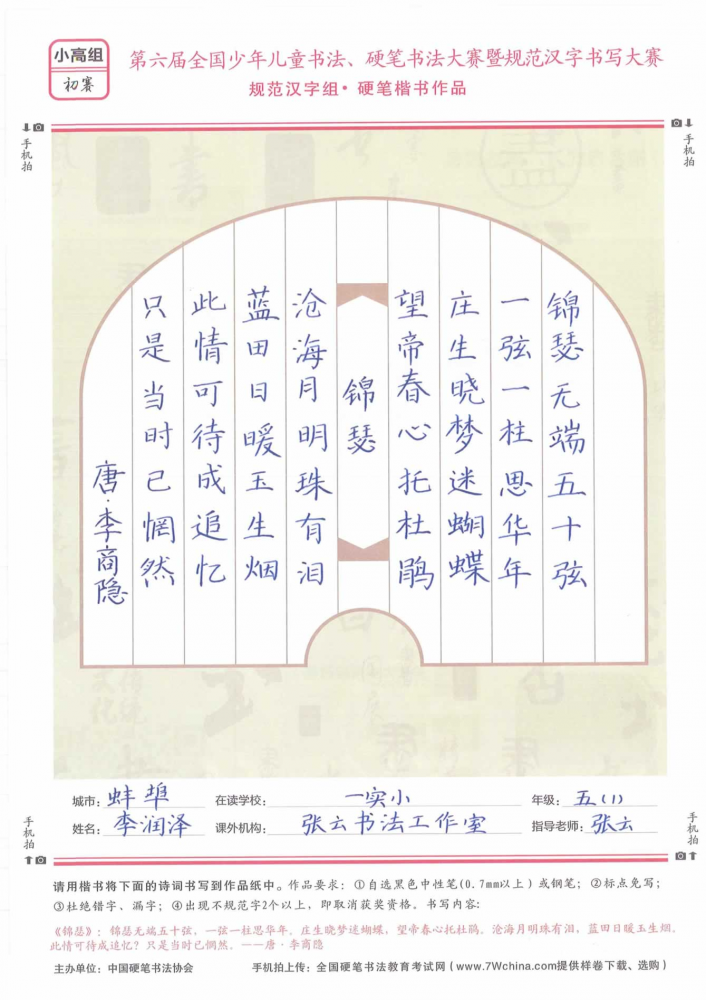 小高组
初赛
第六届全国少年儿童书法、硬笔书法大赛暨规范汉字书写大赛
规范汉字组·硬笔楷书作品
手机拍
手机拍
锦瑟无端五十弦
一弦一柱思华年
庄生晓梦迷蝴蝶
望帝春心托杜鹃
锦瑟
沧海月明珠有泪
蓝田日暖玉生烟
此情可待成追忆
只是当时已惘然
唐·李商隐
城市：蚌埠 在读学校：一实小 年级：五（1）
姓名：李润泽 课外机构：张云书法工作室 指导老师：张云
手机拍
手机拍
请用楷书将下面的诗词书写到作品纸中。作品要求：①自选黑色中性笔(0.7mm以上)或钢笔；②标点免写；
③杜绝错字、漏字；④出现不规范字2个以上，即取消获奖资格。书写内容：
《锦瑟》：锦瑟无端五十弦，一弦一柱思华年。庄生晓梦迷蝴蝶，望帝春心托杜鹃。沧海月明珠有泪，蓝田日暖玉生烟。
此情可待成追忆？只是当时已惘然。——唐·李商隐
主办单位：中国硬笔书法协会 手机拍上传：全国硬笔书法教育考试网（www.7Wchina.com提供样卷下载、选购）